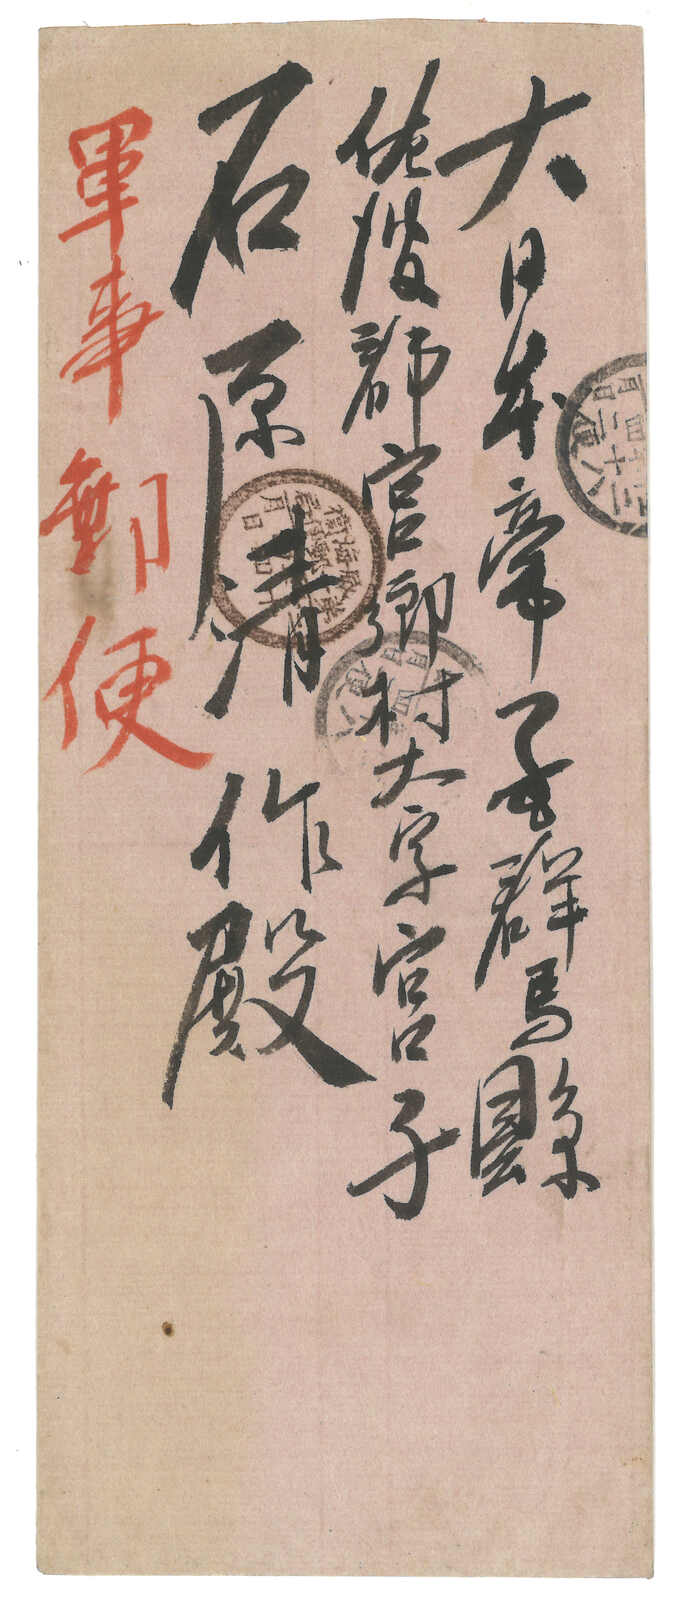 大日本帝國群馬縣
佐波郡宮郷村大字宮子
石原清作殿
軍事郵便